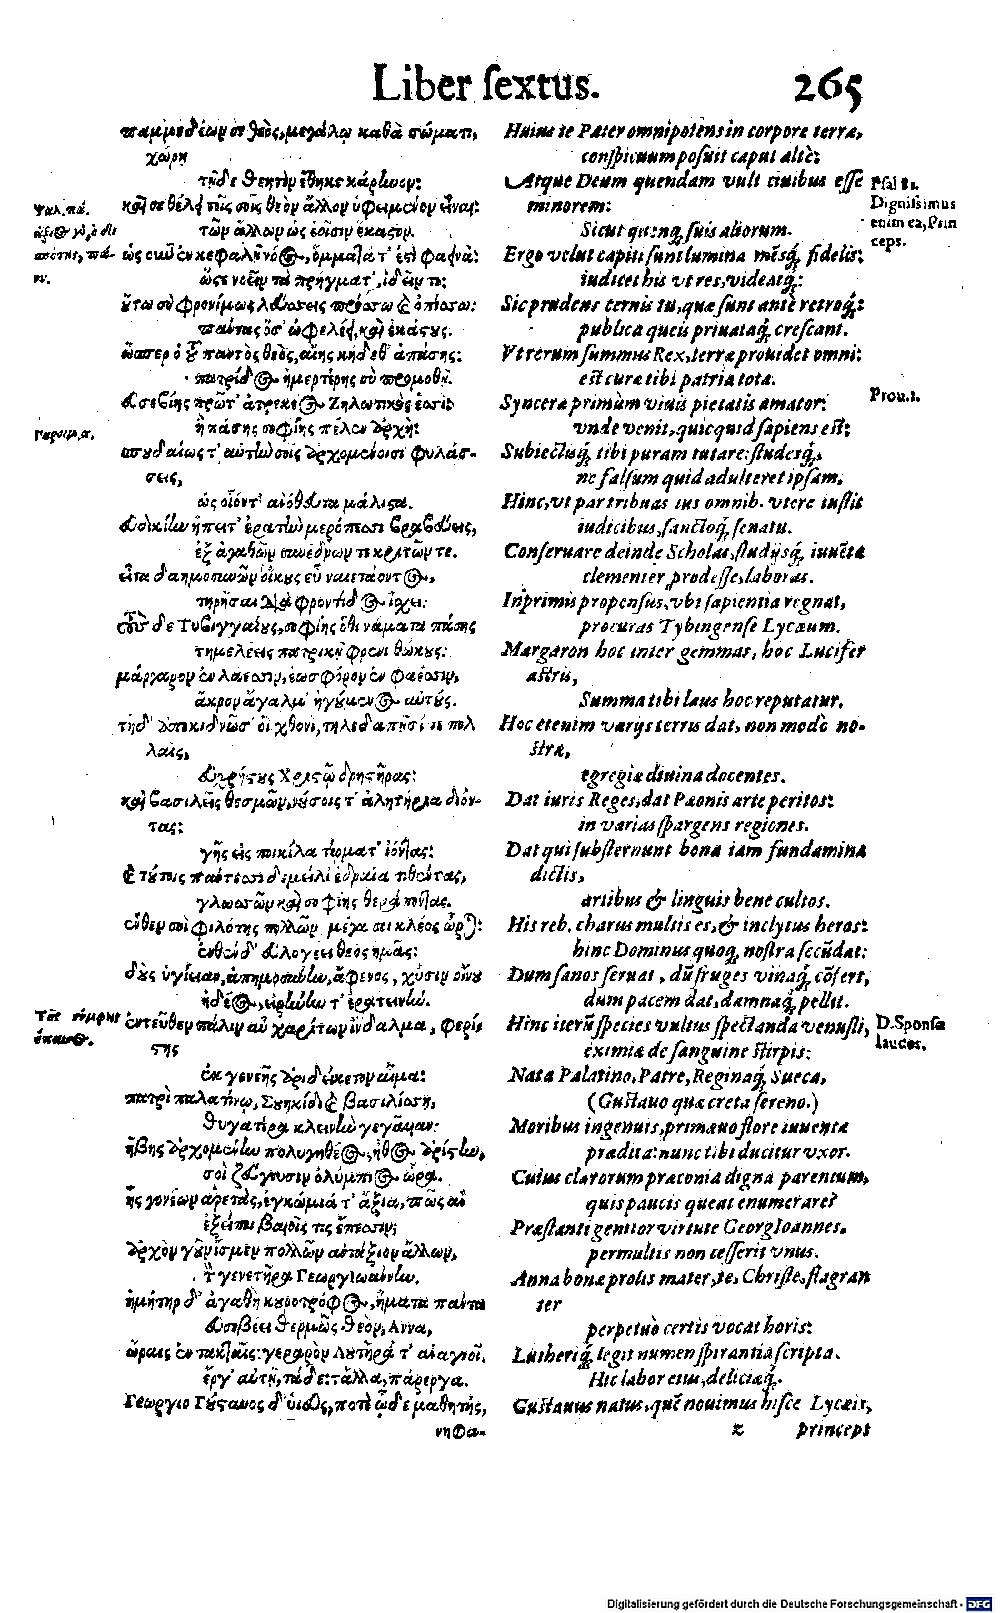 Liber ſextus.
265
μεγάλῳ καθὰ σώματι,
χώρη
τῇδε θεητὴν ἔθηκε κάρηνον:
καὶ σε θέλει τοῖς σοῖς θεὸν ἄλλον ὑφειμένον εἶναι:
τῶν ἄλλων ὡς ἐοῖσιν ἕκαστον.
ὡς οὖν ἐν κεφαλῇ νόος, ὄμματα τ' ἐστὶ φαεινὰ:
ὥστε νοεῖν τὰ πρήγματ', ἰδεῖν τε:
οὕτω σὺ φρονίμως λεύσεις πρόσσω καὶ ὀπίσσω:
πάντας ὅσ' ὠφελέει, καὶ ἑκάστους.
ὥσπερ ὁ τοῦ παντὸς θεὸς, αἴης κήδεθ' ἁπάσης:
πατρίδος ἡμετέρης σὺ προμηθῇ.
εὐσεβίης πρῶτ' ἀτρεκέος ζηλωτικὸς ἐσσὶ:
ἣ πάσης σοφίης πέλεν ἀρχὴ:
σπουδαίως τ' αὐτὴν σοῖς ἀρχομένοισι φυλάσ-
σεις,
ὡς οἷόντ' μάλιστα.
εὐδικίην ἤπειτ' ἐρατὴν μερόπεσσι βραβεύεις,
ἐξ ἀγαθῶν συνέδρων τε κριτῶν τε.
εἶτα δαημοσυνῶν οἴκους εὖ ναιετάοντας,
τηρῆσαι διὰ φροντίδος ἴσχεις:
τοὺς δὲ Τυβιγγαίους, σοφίης ὅθι νάματα πάσης
τημελέεις πατρικῇ φρενὶ θώκους:
μάργαρον ἐν λάεσσιν, ἑωσφόρον ἐν φαέεσσιν,
ἄκρον ἄγαλμ' ἡγούμενος αὐτούς.
χθονὶ, τῆλε πολ
λαῖς,
εὐχρήστους Χριστῷ ἀρητῆρας:
καὶ βασιλεῖς θεσμῶν, νούσοις τ' ἀλητήρια διόν-
τας:
γῆς εἰς ποικίλα τέρματ' ἰόντας:
καὶ τούτοις πάντεσσι θεμείλι' ἑδραῖα τιθέντας,
γλωσσῶν καὶ σοφίης θεράποντας.
ἔνθεν σοὶ φιλότης πολλῶν μέγα σοι κλέος
ἔνθεν δ' εὐλογέει θεὸς ἡμᾶς:
δοὺς ὑγίειαν, ἀπημοσύνην, ἄφενος, χύσιν οἴνου
ἡδέος, εἰρήνην τ' ἐρατεινήν.
ἐντεῦθεν πάλιν αὖ χαρίτων ἴνδαλμα, φερί-
στης
ἐκ γενεῆς ἀριδείκετον αἷμα:
πατρὶ παλατίνῳ, Σουηκίδι καὶ βασιλίσσῃ,
θυγατέρα κλεινὴν γεγαῖαν:
ἥβης ἀρχομένην πολυγηθέος, ἦθος ἀρίστην,
σοὶ ζεύγνυσιν ὀλύμπιος ὥρα.
ἧς γονέων ἀρετὰς, ἐγκώμιά τ' ἄξια, πῶς ἂν
ἐξείποι βαιοῖς τις ἔπεσσιν;
ἀρχὸν γοῦν ἴσμεν πολλῶν ἀντάξιον ἄλλων,
γενετῆρα Γεωργιωάννην.
ἡ μήτηρ δ' ἀγαθὴ κουροτρόφος, ἤματα πάντα
εὐσεβέει θερμῶς θεὸν, Ἄννα,
ὥραις ἐν τακταῖς: γεραρὸν Λουτῆρά τ'
ἔργ' αὐτῇ, τάδε: τἄλλα, πάρεργα.
Γεώργιο Γούσταυος δ' υἱὸς, ποτὶ ὧδε μαθητὴς,
νηφα-
Ψαλ. πα.
Παροιμ. α.
Τῆς νύμφης
ἔπαινος.
Huius te Pater omnipotens in corpore terræ,
conſpicuum poſuit caput altè:
Atque Deum quendam vult ciuibus eſſe
minorem:
Sicut quenq; ſuis aliorum.
Ergo velut capiti ſunt lumina mēsq; fidelis:
iudicet his vt res, videatq;:
Sic prudens cernis tu, quæ ſunt antè retroq;:
publica queis priuataq; creſcant.
Vt rerum ſummus Rex, terræ prouidet omni:
eſt curæ tibi patria tota.
Synceræ primùm viuis pietatis amator:
vnde venit, quicquid ſapiens eſt:
Subiectisq; tibi puram tutare: ſtudesq;,
ne falſum quid adulteret ipſam,
Hinc, vt par tribuas ius omnib. vtere iuſtis
iudicibus, ſanctoq; ſenatu.
Conſeruare deinde Scholas, ſtudijsq; iuuēta
clementer prodeſſe, laboras.
Inprimis propenſus, vbi ſapientia regnat,
procuras Tybingenſe Lycæum.
Margaron hoc inter gemmas, hoc Lucifer
aſtris,
Summa tibi laus hoc reputatur.
Hoc etenim varijs terris dat, non modò no-
ſtræ,
egregiè diuina docentes.
Dat iuris Reges, dat Pæonis arte peritos:
in varias ſpargens regiones.
Dat qui ſubſternunt bona iam fundamina
dictis,
artibus & linguis bene cultos.
His reb. charus multis es, & inclytus heros:
hinc Dominus quoq; noſtra ſecūdat:
Dum ſanos ſeruat, dū fruges vinaq; cōfert,
dum pacem dat, damnaq; pellit.
Hinc iterū ſpecies vultus ſpectanda venuſti,
eximiæ de ſanguine ſtirpis:
Nata Palatino, Patre, Reginaq; Sueca,
(Guſtauo quæ creta ſereno.)
Moribus ingenuis, primæuo flore iuuentæ
prædita: nunc tibi ducitur vxor.
Cuius clarorum præconia digna parentum,
quis paucis queat enumerare?
Præſtanti genitor virtute GeorgIoannes,
permultis non ceſſerit vnus.
Anna bonæ prolis mater, te, Chriſte, flagran
ter
perpetuò certis vocat horis:
Lutheriq; legit numen ſpirantia ſcripta.
Hic labor eius, deliciæq;.
Guſtauus natus, quē nouimus hiſce Lycæis,
z
princeps
Pſal 81.
Digniſsimus
enim ea, Prin
ceps.
Prou. 1.
D. Sponſæ
laudes.
Digitalisierung gefördert durch die Deutsche Forschungsgemeinschaft - DFG